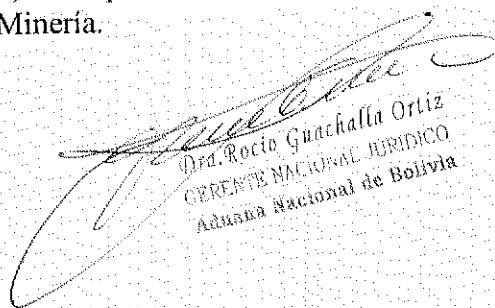 Minería.
Dra. Rocío Guachalla Ortiz
GERENTE NACIONAL JURIDICO
Aduana Nacional de Bolivia